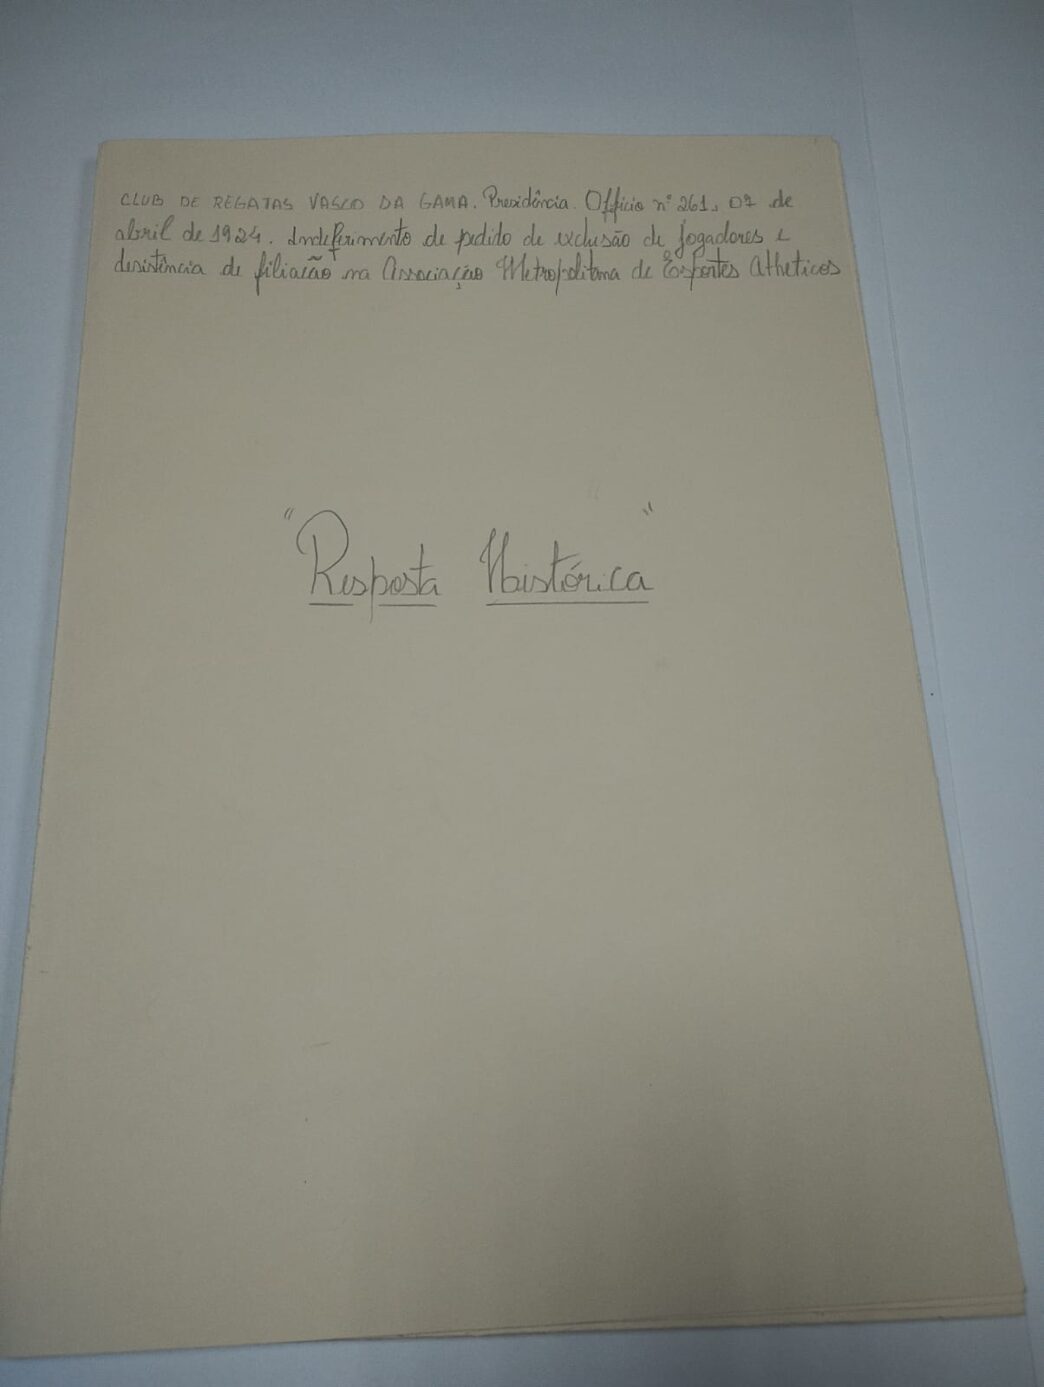 CLUB DE REGATAS VASCO DA GAMA. Presidência. Officio nº 261, 07 de
abril de 1924. Indeferimento de pedido de exclusão de jogadores e
desistência de filiação na Associação Metropolitana de Esportes Atheticos
"Resposta Histórica"